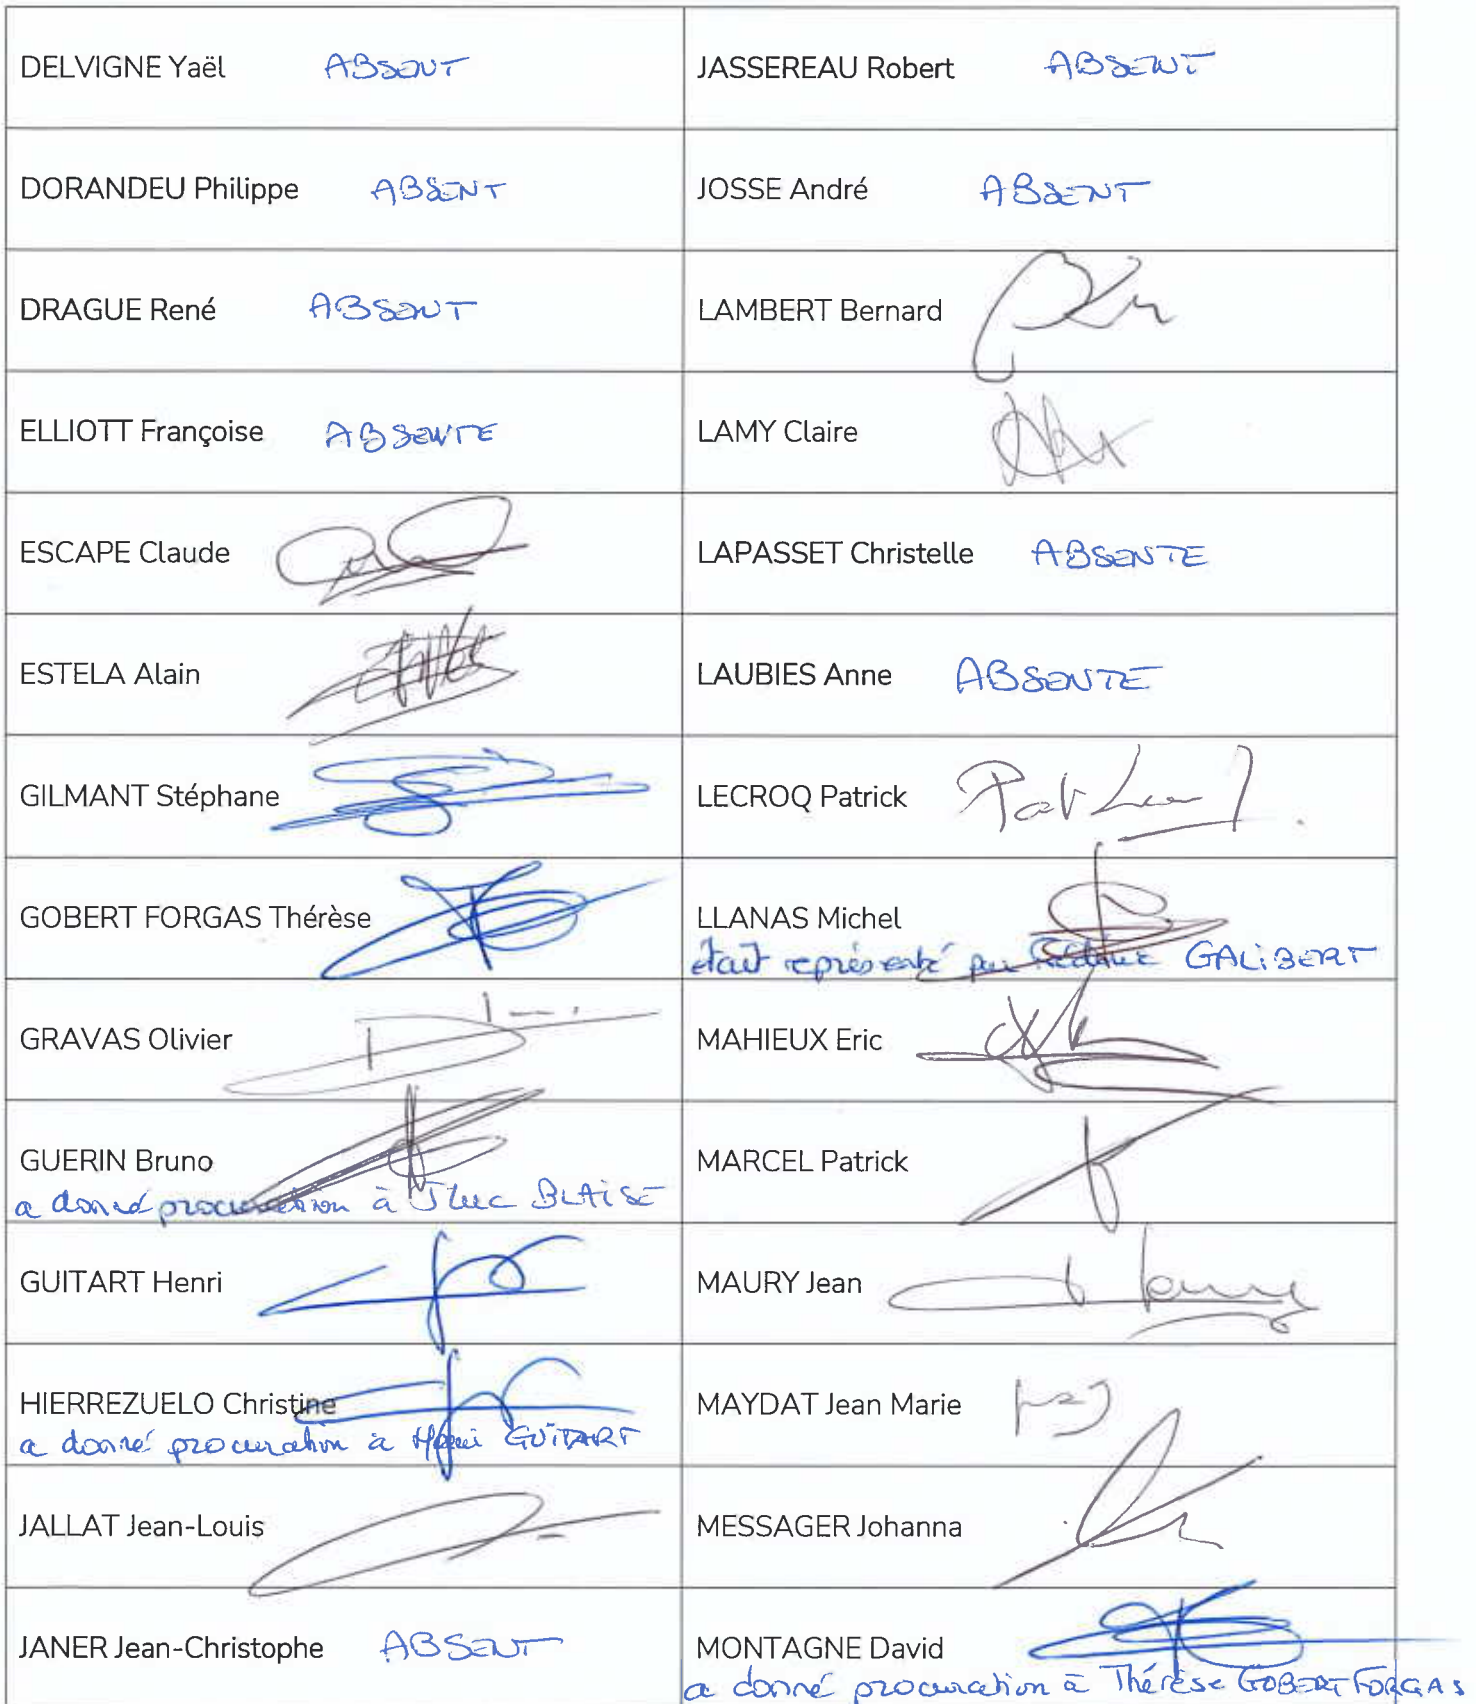 DELVIGNE Yaël ABSENT
JASSEREAU Robert ABSENT
DORANDEU Philippe ABSENT
JOSSE André ABSENT
DRAGUE René ABSENT
LAMBERT Bernard
ELLIOTT Françoise ABSENTE
LAMY Claire
ESCAPE Claude
LAPASSET Christelle ABSENTE
ESTELA Alain
LAUBIES Anne ABSENTE
GILMANT Stéphane
LECROQ Patrick
GOBERT FORGAS Thérèse
LLANAS Michel
était représenté par GALIBERT
GRAVAS Olivier
MAHIEUX Eric
GUERIN Bruno
a donné procuration à JLuc BLAISE
MARCEL Patrick
GUITART Henri
MAURY Jean
HIERREZUELO Christine
a donné procuration à Henri GUITART
MAYDAT Jean Marie
JALLAT Jean-Louis
MESSAGER Johanna
JANER Jean-Christophe ABSENT
MONTAGNE David
a donné procuration à Thérèse GOBERT FORGAS